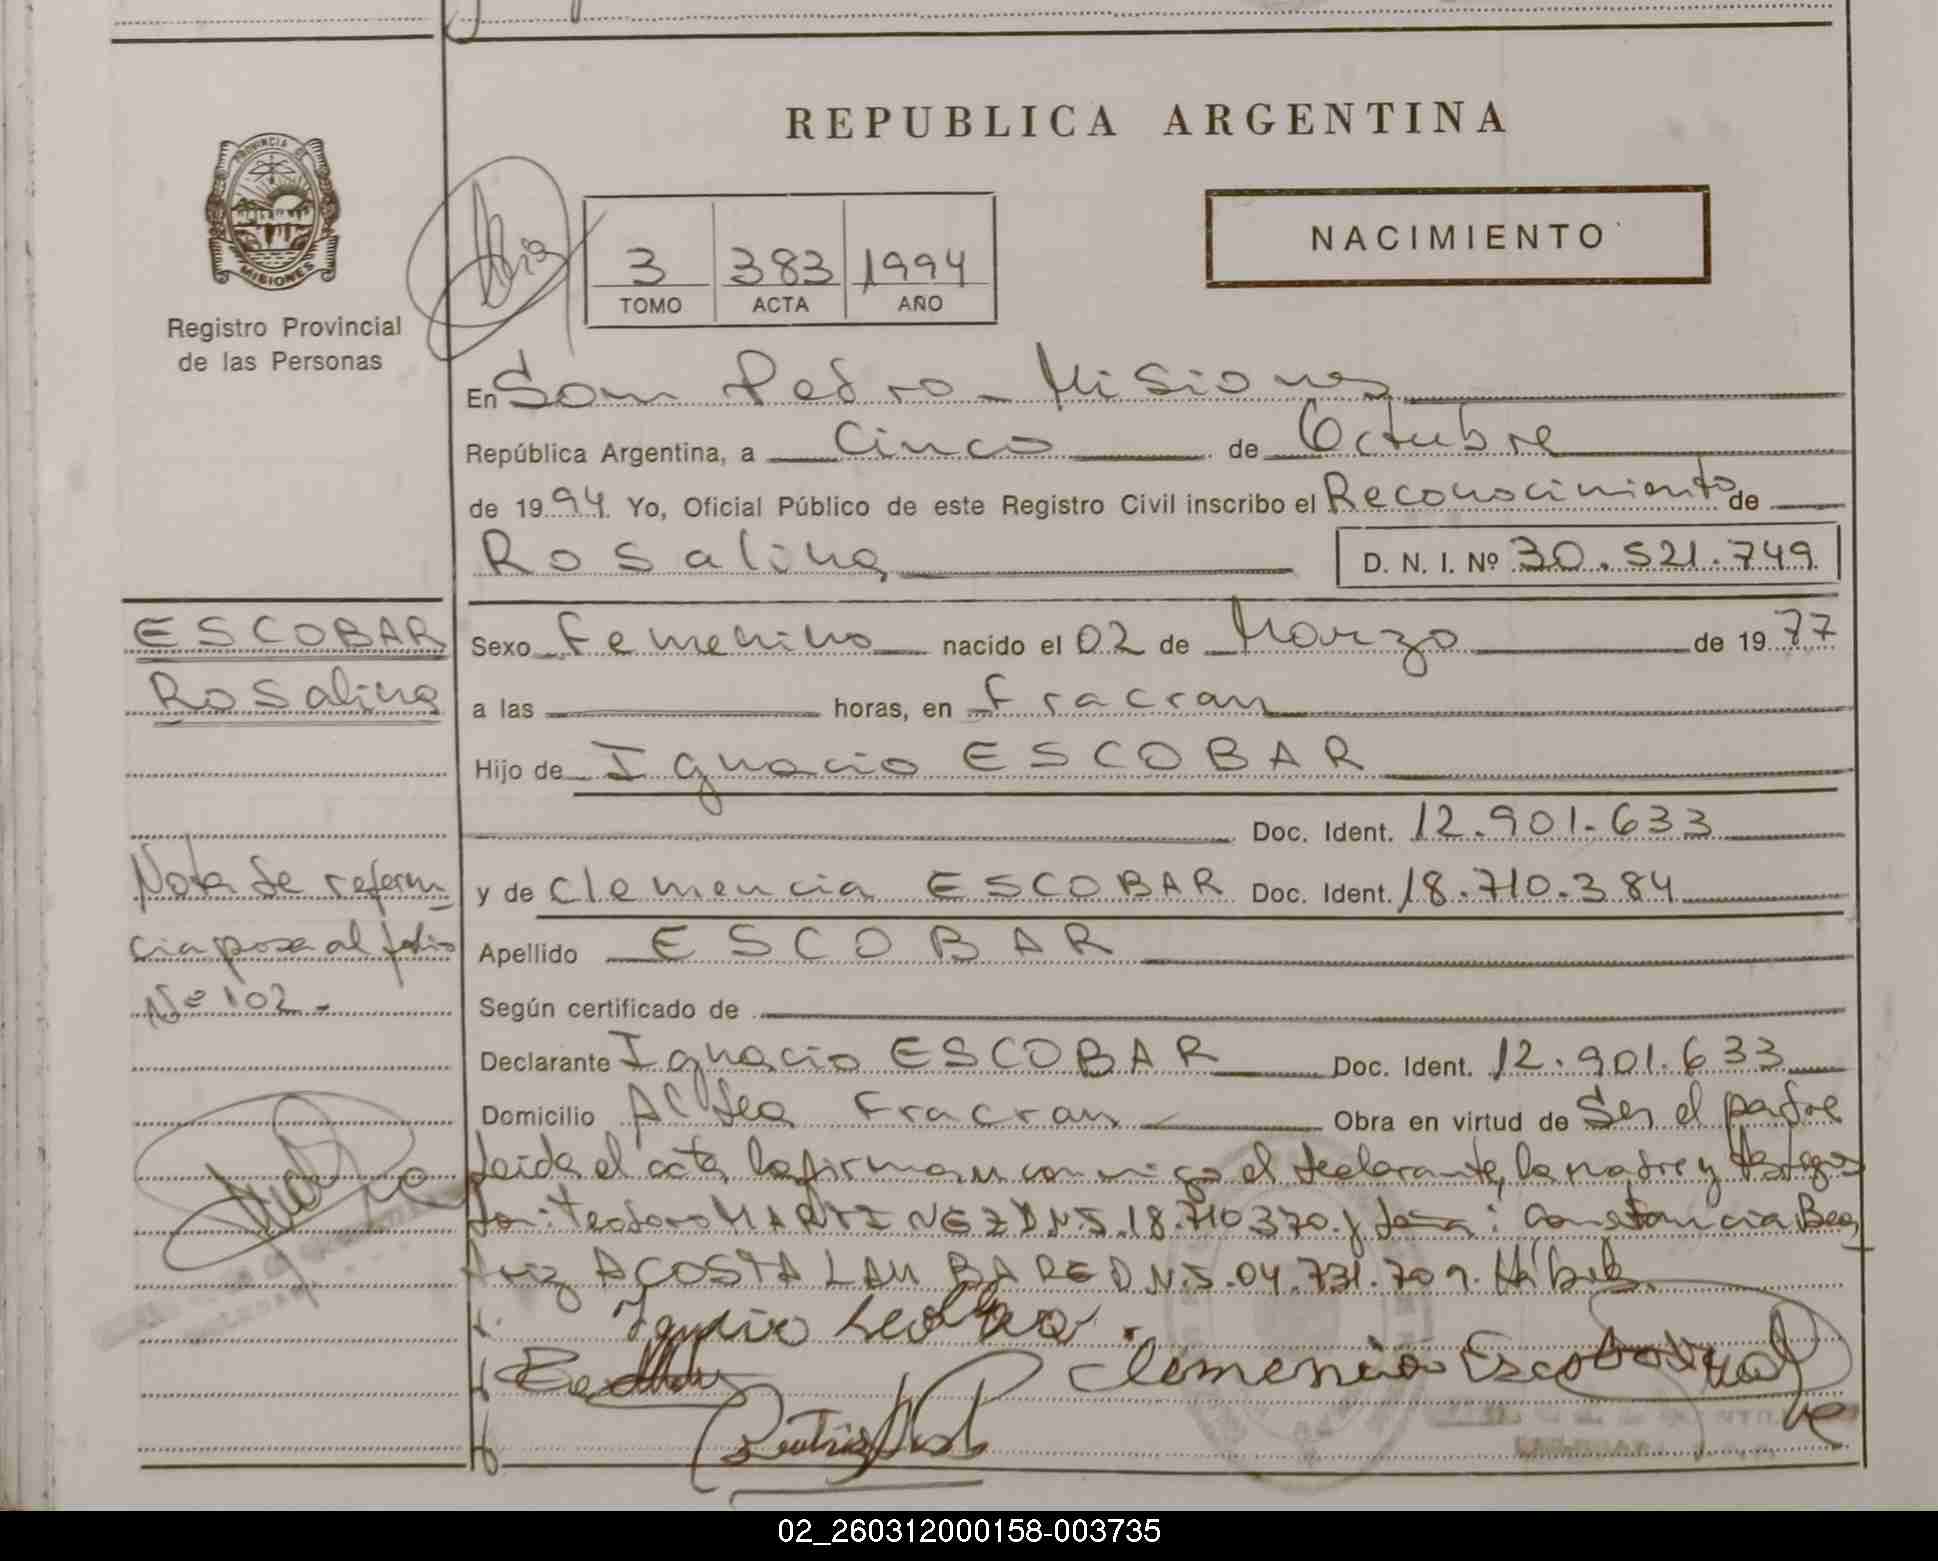 REPUBLICA ARGENTINA
PROVINCIA DE
MISIONES
Registro Provincial
de las Personas
NACIMIENTO
3 383 1994
TOMO ACTA AÑO
En San Pedro - Misiones
República Argentina, a Cinco de Octubre
de 1994 Yo, Oficial Público de este Registro Civil inscribo el Reconocimiento de
Rosalina
D. N. I. Nº 30.521.749
ESCOBAR
Rosalina
Sexo Femenino nacido el 02 de Marzo de 1977
a las horas, en Fracran
Hijo de Ignacio ESCOBAR
Doc. Ident. 12.901.633
y de Clemencia ESCOBAR Doc. Ident. 18.710.384
Nota de referen
cia pasa al folio
Nº 102.
Apellido ESCOBAR
Según certificado de
Declarante Ignacio ESCOBAR Doc. Ident. 12.901.633
Domicilio Aldea Fracran Obra en virtud de Ser el padre
Leida el acta, la firman conmigo el declarante, la madre y testigos
Don: Teodoro MARTINEZ D.N.I. 18.710.370 y Doña: Constancia Bea
triz ACOSTA LAMBARE D.N.I. 04.731.709. Hábiles
Clemencia Escobar
02_260312000158-003735